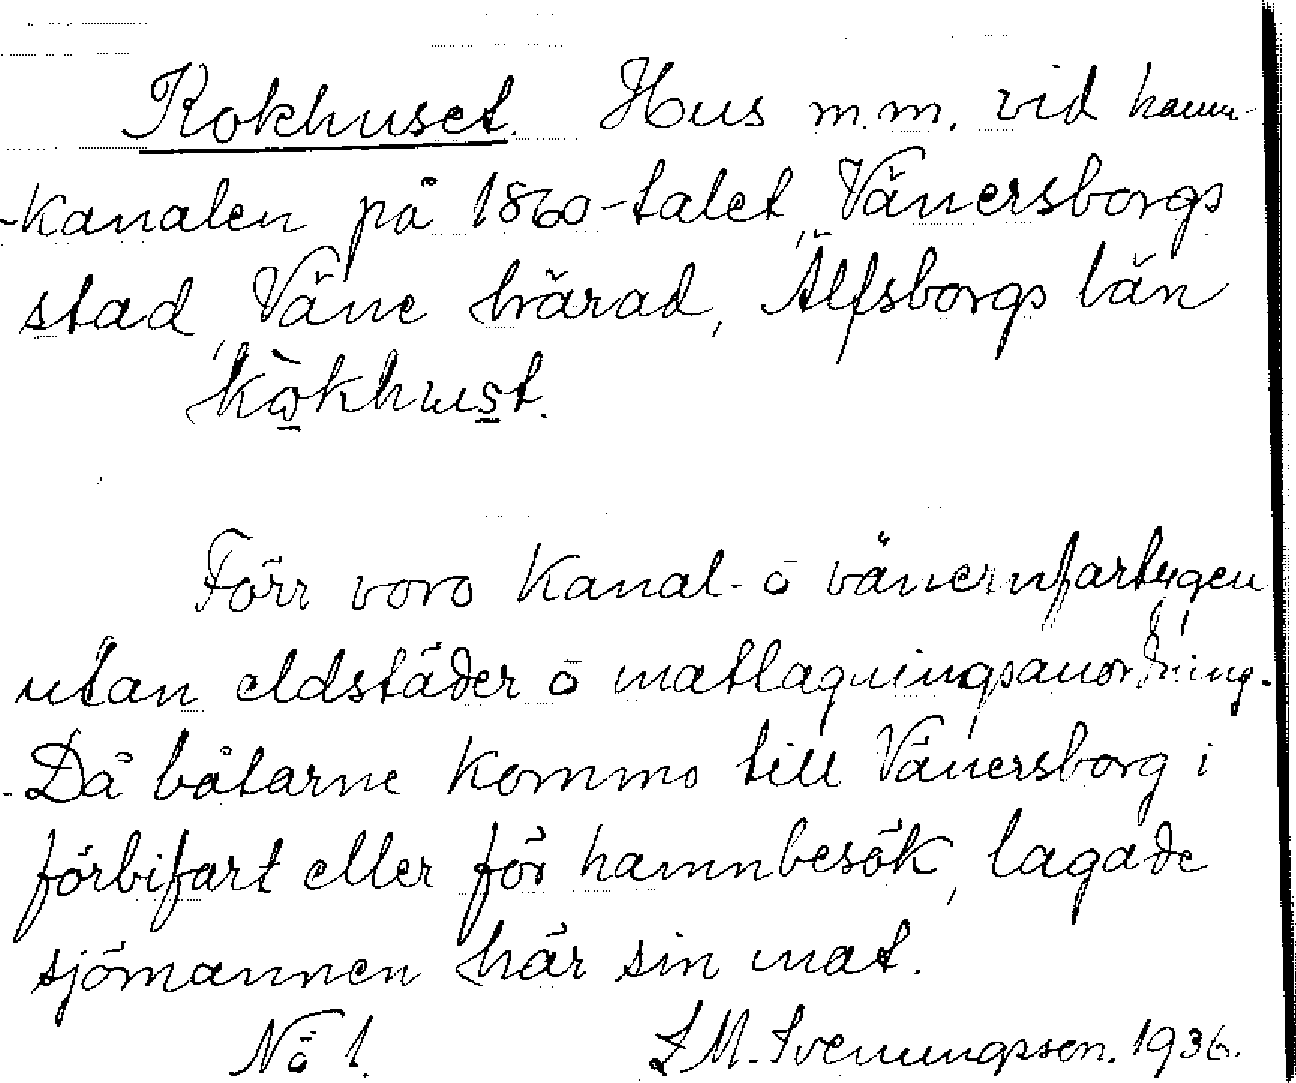 Kokhuset. Hus m.m. vid hamn-
-kanalen på 1860-talet, Vänersborgs
stad, Väne härad, Älfsborgs län
Förr voro kanal- o vänernfartygen
utan eldstäder o matlagningsanordning.
-Då båtarne kommo till Vänersborg i
förbifart eller för hamnbesök, lagade
sjömannen här sin mat.
No 1. L M. Svenungsson. 1936.